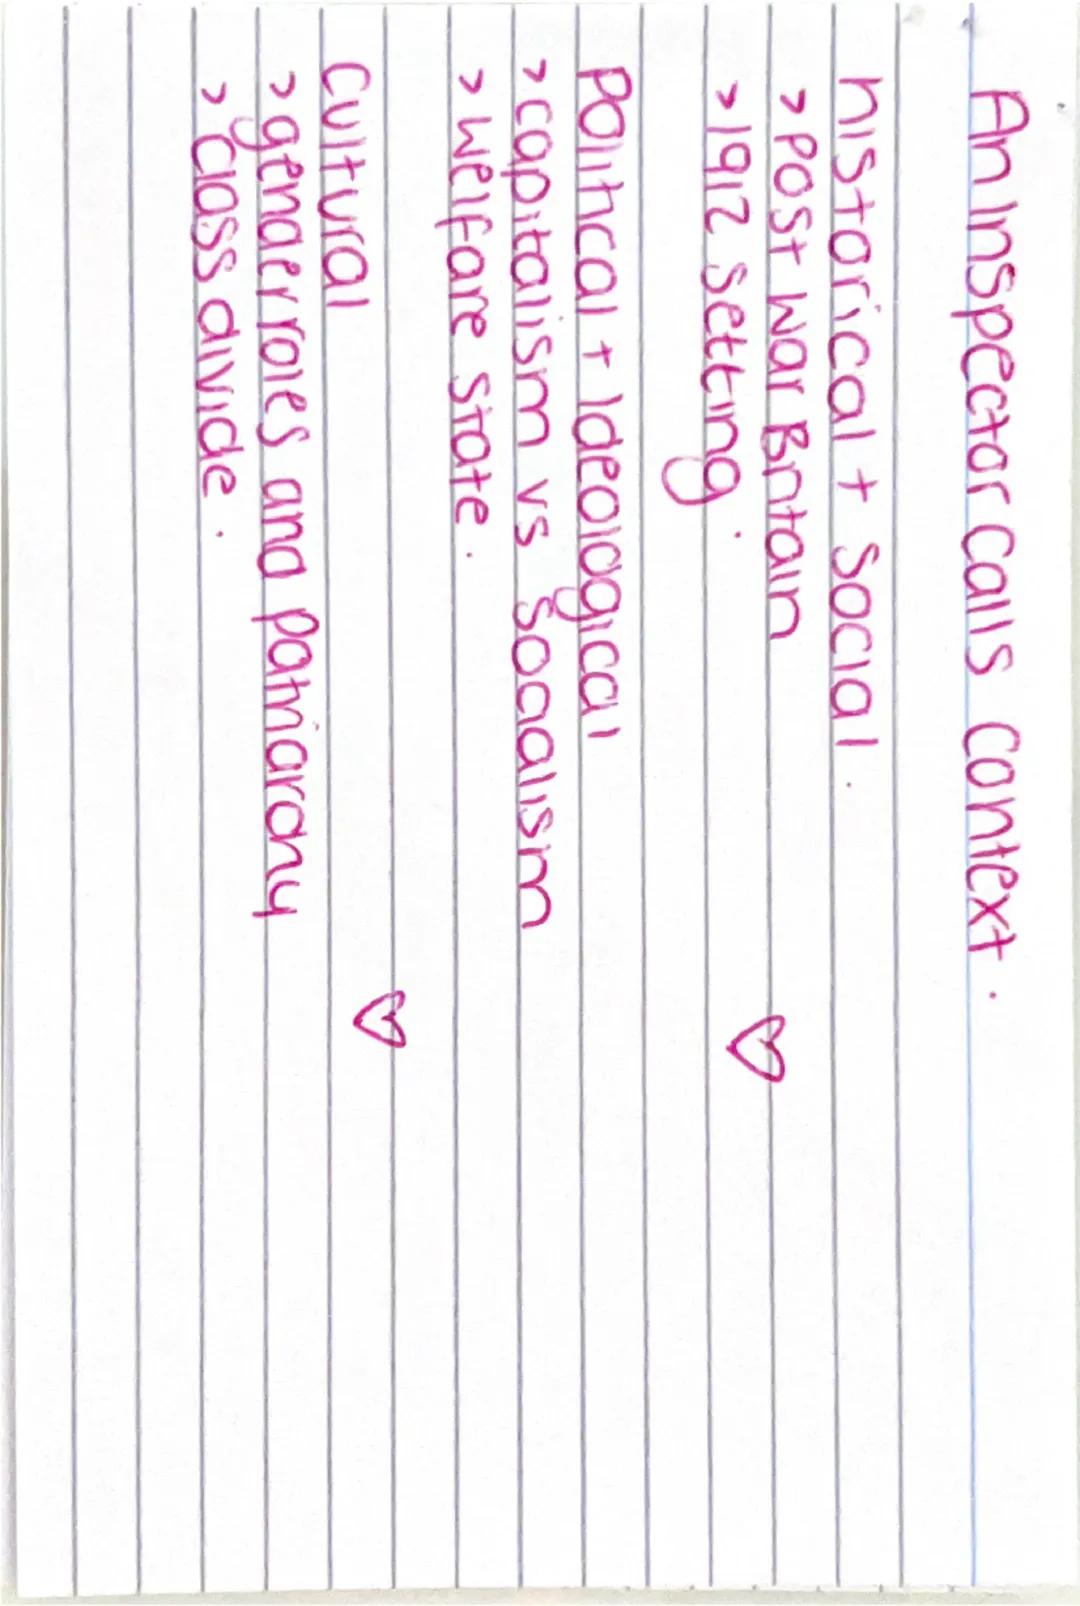 An Inspector calls context.
historical + social.
> Post war Britain
> 1912 setting.
Political + Ideological
> capitalism vs socialism
> welfare state.
Cultural
> gender roles and patriarchy
> Class divide.